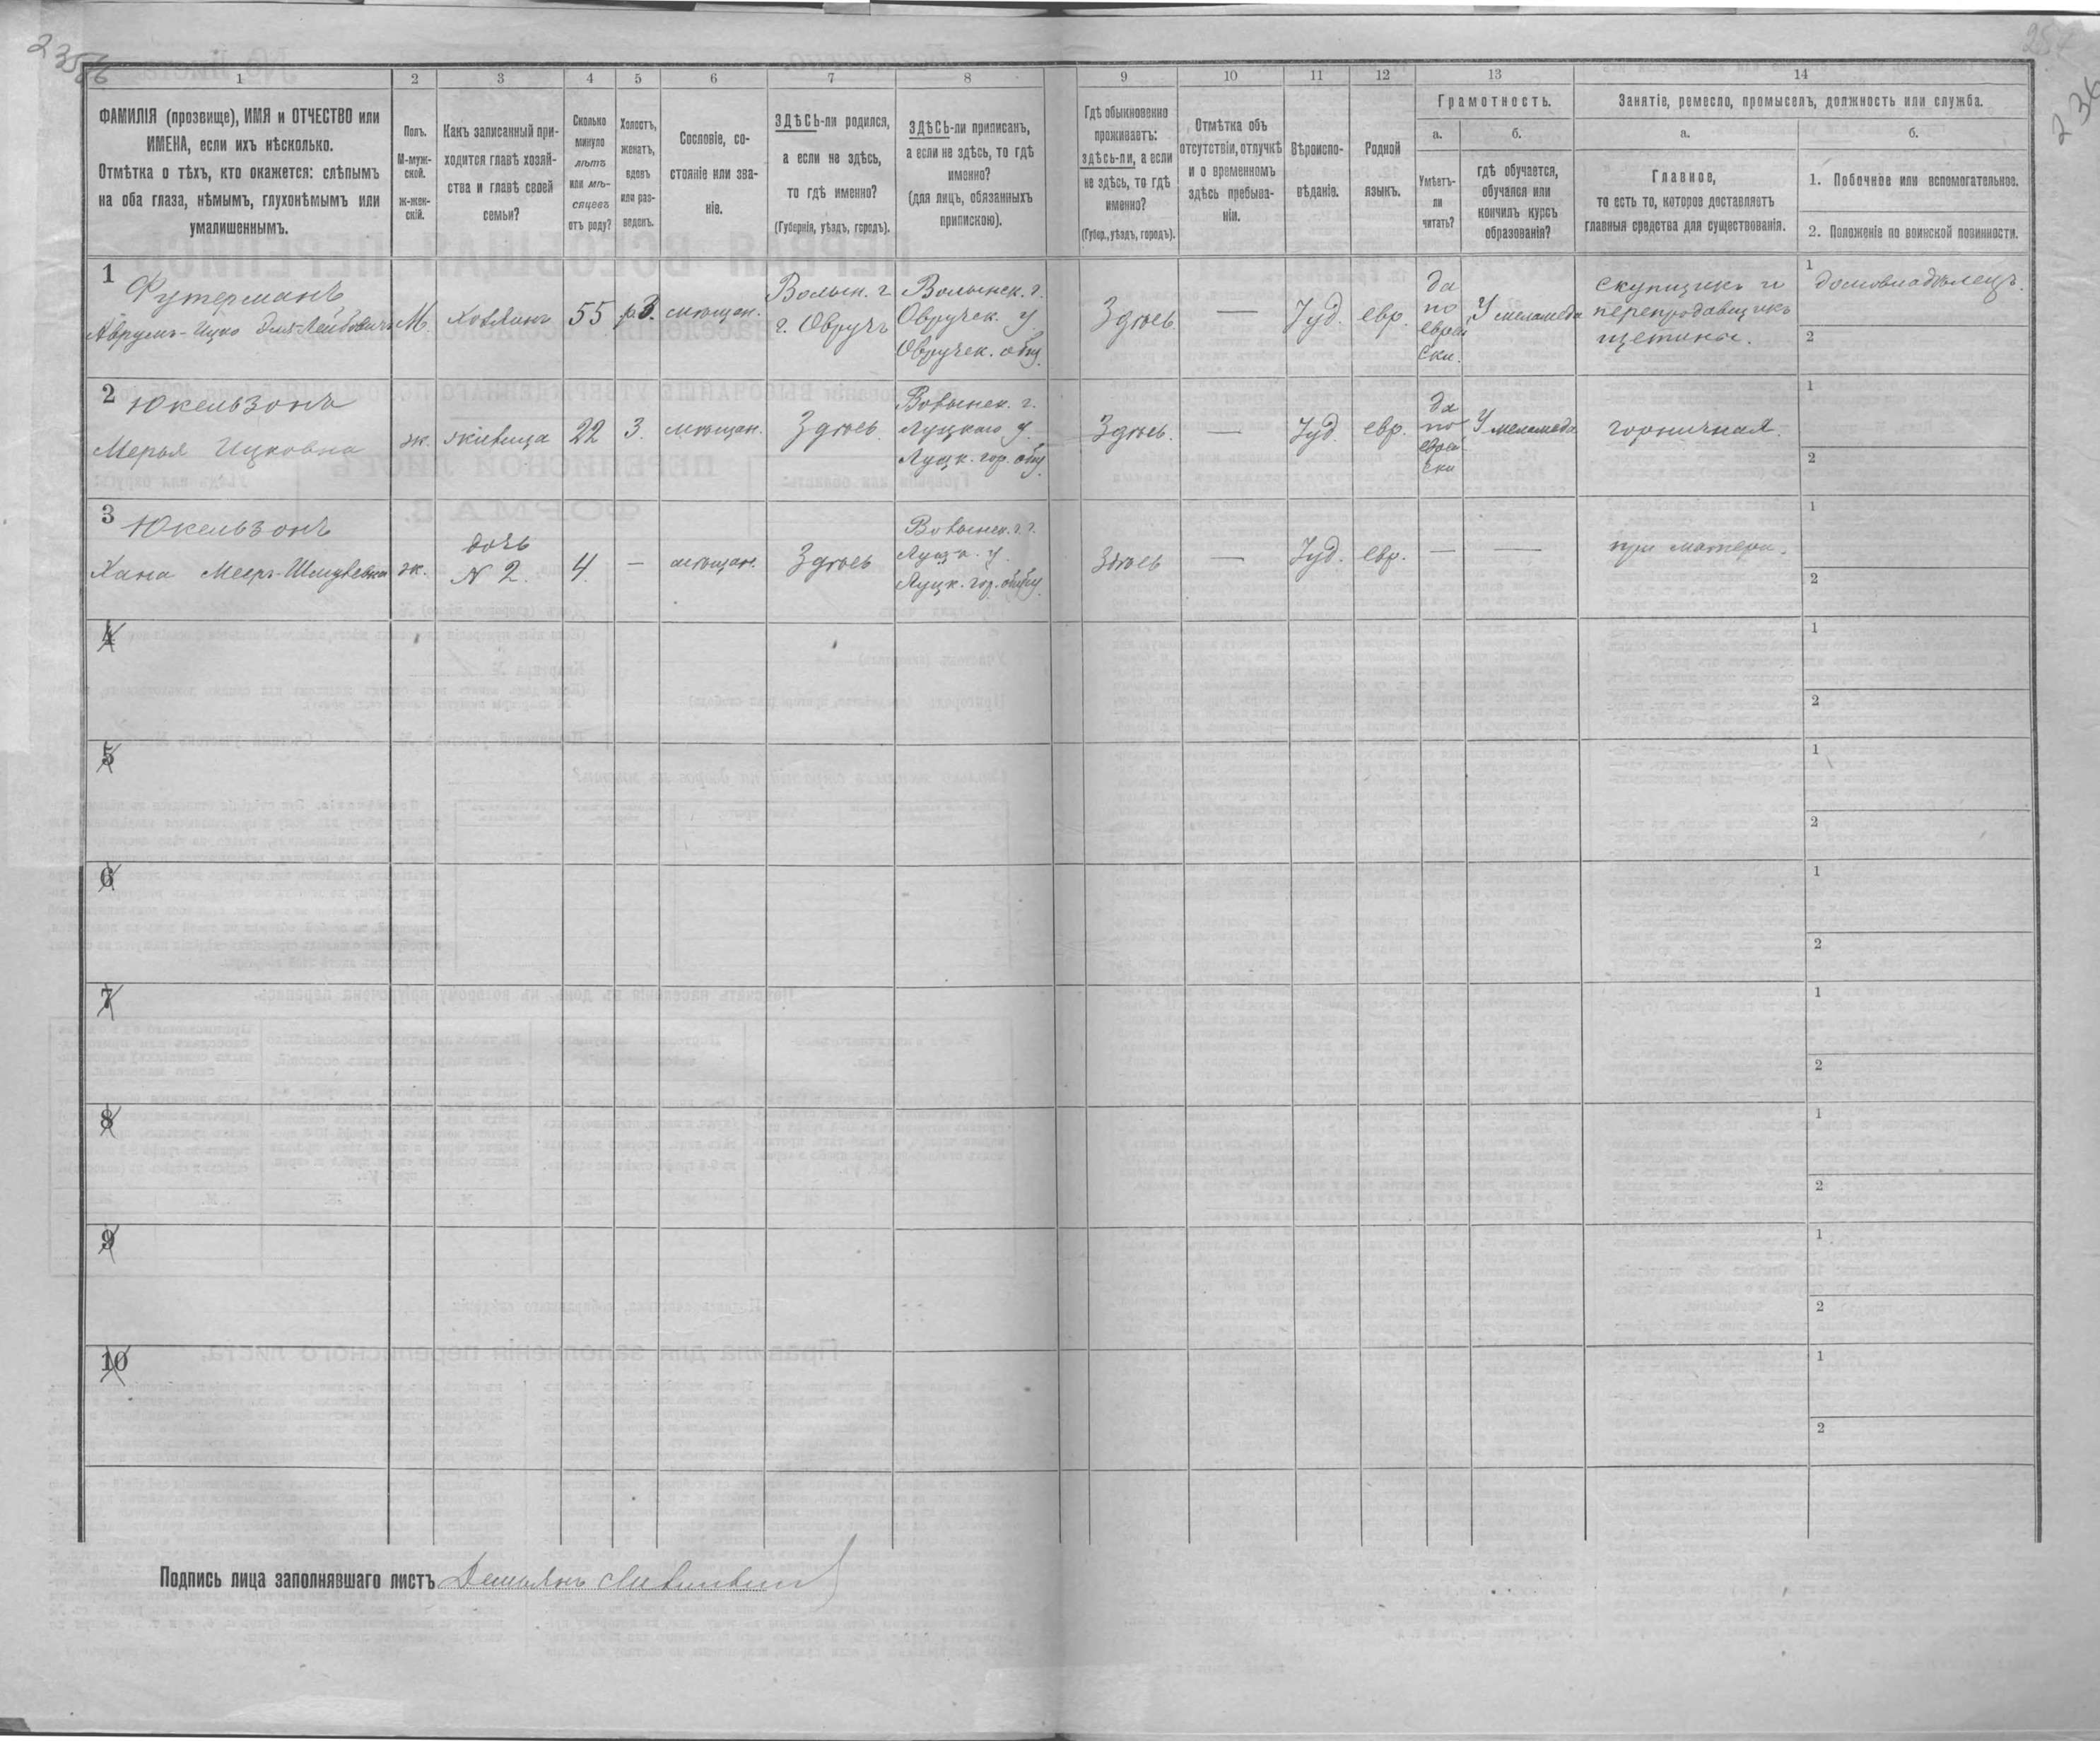 1 2 3 4 5 6 7 8 9 10 11 12 13 14
ФАМИЛІЯ (прозвище), ИМЯ и ОТЧЕСТВО или
ИМЕНА, если ихъ нѣсколько.
Отмѣтка о тѣхъ, кто окажется: слѣпымъ
на оба глаза, нѣмымъ, глухонѣмымъ или
умалишеннымъ.
Полъ.
М-муж-
ской.
ж-жен-
скій.
Какъ записанный при-
ходится главѣ хозяй-
ства и главѣ своей
семьи?
Сколько
минуло
лѣтъ
или мѣ-
сяцевъ
отъ роду?
Холостъ,
женатъ,
вдовъ
или раз-
веденъ.
Сословіе, со-
стояніе или зва-
ніе.
ЗДѢСЬ-ли родился,
а если не здѣсь,
то гдѣ именно?
(Губернія, уѣздъ, городъ).
ЗДѢСЬ-ли приписанъ,
а если не здѣсь, то гдѣ
именно?
(для лицъ, обязанныхъ
припискою).
Гдѣ обыкновенно
проживаетъ:
здѣсь-ли, а если
не здѣсь, то гдѣ
именно?
(Губер., уѣздъ, городъ).
Отмѣтка объ
отсутствіи, отлучкѣ
и о временномъ
здѣсь пребыва-
ніи.
Вѣроиспо-
вѣданіе.
Родной
языкъ.
Грамотность.
а.
Умѣетъ-
ли
читать?
б.
гдѣ обучается,
обучался или
кончилъ курсъ
образованія?
Занятіе, ремесло, промыселъ, должность или служба.
а.
Главное,
то есть то, которое доставляетъ
главныя средства для существованія.
б.
1. Побочное или вспомогательное.
2. Положеніе по воинской повинности.
1
Футерманъ
Аврумъ-Ицко Эля-Лейбовичъ
М.
Хозяинъ
55
р.
мѣщан.
Волын. г.
г. Овручъ
Волынск. г.
Овручск. у.
Овручск. общ.
Здѣсь.
—
Іуд.
евр.
да
по
еврей
ски.
У меламеда
скупщикъ и
перепродавщикъ
щетины.
1
домовладѣлецъ.
2
2
Юкельзонъ
Мерья Ицковна
ж.
жилица
22
З.
мѣщан.
Здѣсь.
Волынск. г.
Луцкаго у.
Луцк. гор. общ.
Здѣсь.
—
Іуд.
евр.
да
по
еврей
ски
У меламеда
горничная.
1
2
3
Юкельзонъ
Хана Мееръ-Шмулевна
ж.
дочь
N 2.
4
—
мѣщан.
Здѣсь
Волынск. г.
Луцк. у.
Луцк. гор. общ.
Здѣсь
—
Іуд.
евр.
—
—
при матери.
1
2
4
1
2
5
1
2
6
1
2
7
1
2
8
1
2
9
1
2
10
1
2
Подпись лица заполнявшаго листъ Демьянъ